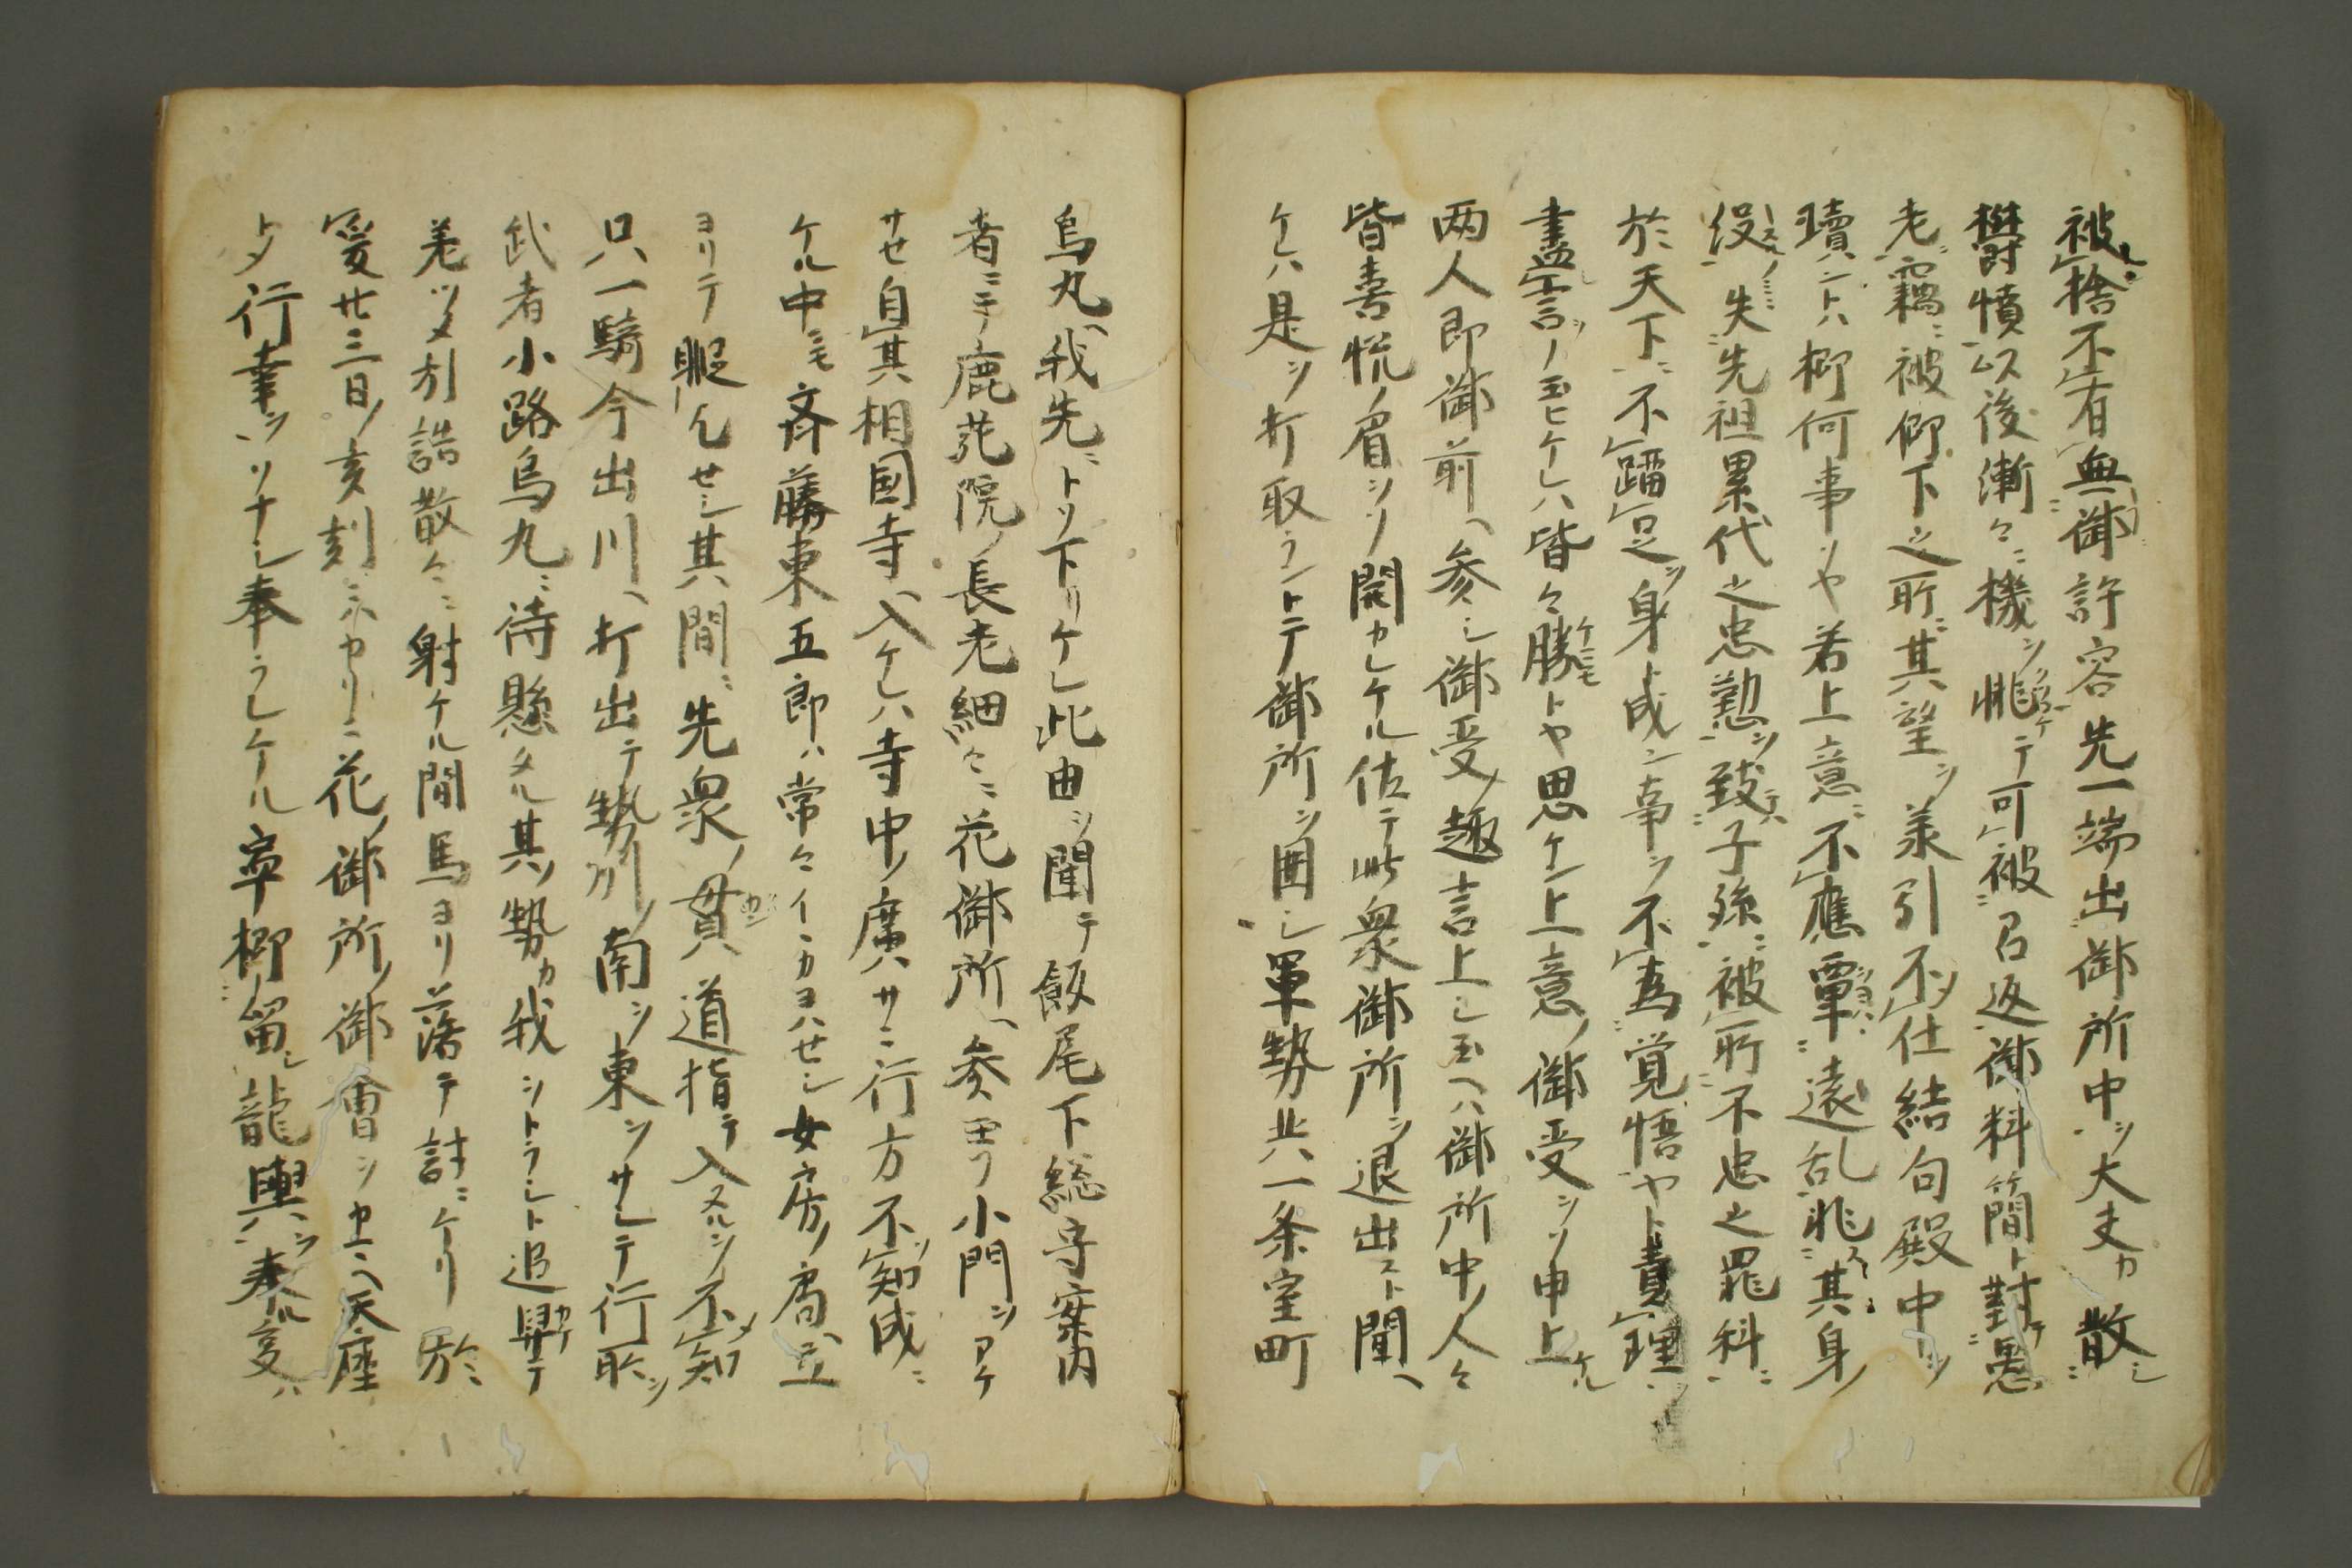 被捨不有無御許容先一端出御所中ヲ大丈カ散シ
欝憤以後漸々ニ機ヲ伺テ可被召返御料簡ト對愚
老竊ニ被仰下之所ニ其望ヲ羕引不仕結句殿中ヲ
瀆ントハ抑何事ソヤ若上意ニ不應軍遠乱兆其身ノ
後ニ失先祖累代之忠懃ヲ致子孫ニ被所不忠之罪科ニ
於天下ニ不蹈足ヲ身ト成ン事ヲ不為覚悟ヤト責理ヲ
盡言ノ玉ヒケレハ皆々勝トヤ思ケン上意ノ御受ヲソ申上ケル
两人即御前ヘ参シ御受ノ趣言上シ玉ヘハ御所中ノ人々
皆喜悦ノ眉ヲソ開カレケル依テ此衆御所ヲ退出スト聞ヘ
ケレハ是ヲ打取ラントテ御所ヲ囲シ軍勢共一条室町
烏丸ヘ我先ニトソ下リケレ此由ヲ聞テ飯尾下総守案内
者ニテ鹿苑院ノ長老細々ニ花御所ヘ参玉フ小門ヲアケ
サセ自其相国寺ヘ入ケレハ寺中ノ廣ハサニ行方不知成ニ
ケル中ニモ斉藤東五郎ハ常々イヽカヨハセシ女房ノ局ヘ立
ヨリテ暇乞セシ其間ニ先衆ノ貫道指テ入ヌルヲ不知
只一騎今出川ヘ打出テ勢州ノ南ヲ東ヲサシテ行所ヲ
武者小路烏丸ニ待懸タル其ノ勢カ我ヲトラント追擧テ
差ツメ引詰散々ニ射ケル間馬ヨリ落テ討ニケリ於
爰廿三日ノ亥刻ハカリニ花ノ御所ノ御會ヲカエヘ天座
トメ行幸ヲソナシ奉ラレケル寧抑留シ龍輿ヲ奉ル㕝ハ